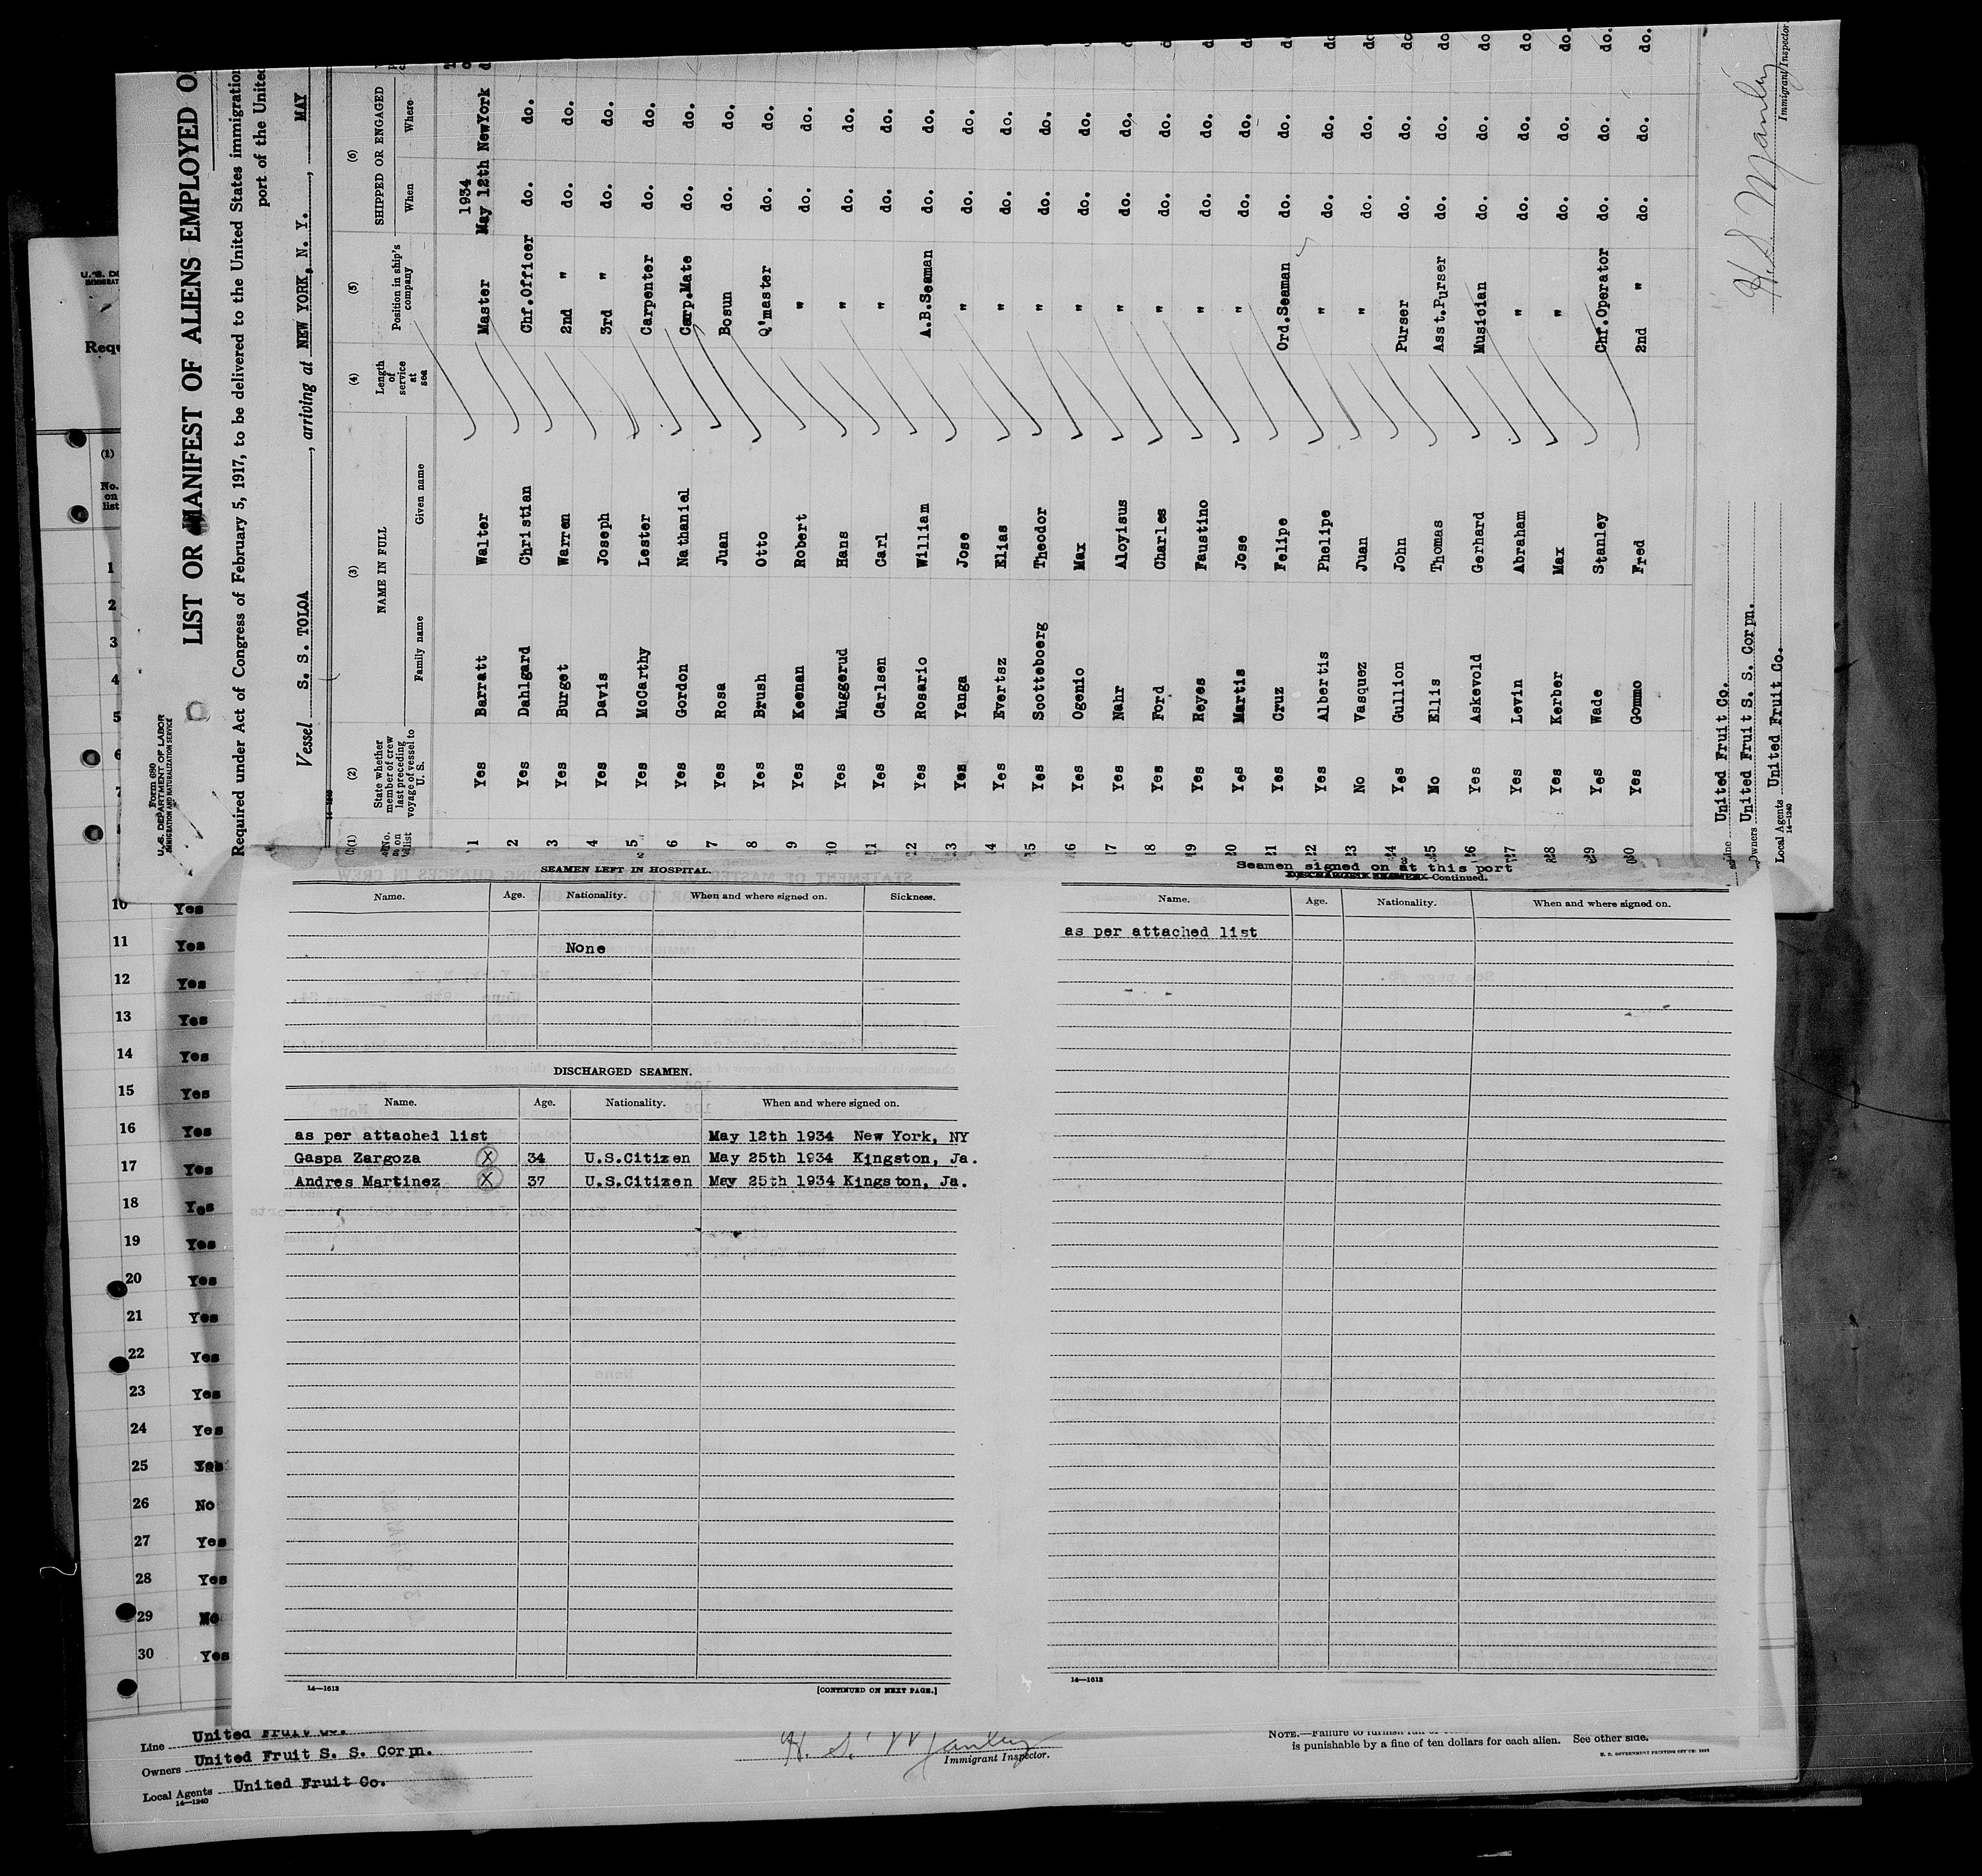 Form 680
U. S. DEPARTMENT OF LABOR
IMMIGRATION AND NATURALIZATION SERVICE
LIST OR MANIFEST OF ALIENS EMPLOYED O
Required under Act of Congress of February 5, 1917, to be delivered to the United States immigration
port of the United
Vessel S. S. TOLOA, arriving at NEW YORK, N. Y., MAY
14-1240
(1) (2) (3) (4) (5) (6)
No. on list
State whether member of crew last preceding voyage of vessel to U. S.
NAME IN FULL
Family name Given name
Length of service at sea
Position in ship's company
SHIPPED OR ENGAGED
When Where
1934
1 Yes Barratt Walter Master May 12th NewYork
2 Yes Dahlgard Christian Chf.Officer do. do. do.
3 Yes Burget Warren 2nd " do. do.
4 Yes Davis Joseph 3rd " do. do.
5 Yes McCarthy Lester Carpenter do. do.
6 Yes Gordon Nathaniel Carp.Mate do. do.
7 Yes Rosa Juan Bosun do. do.
8 Yes Brush Otto Q'master do. do.
9 Yes Keenan Robert " do. do.
10 Yes Muggerud Hans " do. do.
11 Yes Carlsen Carl " do. do.
12 Yes Rosario William A.B.Seaman do. do.
13 Yes Yanga Jose " do. do.
14 Yes Evertsz Elias " do. do.
15 Yes Scotteboerg Theodor " do. do.
16 Yes Ogenio Max " do. do.
17 Yes Nahr Aloyisus " do. do.
18 Yes Ford Charles " do. do.
19 Yes Reyes Faustino " do. do.
20 Yes Martis Jose " do. do.
21 Yes Cruz Felipe Ord.Seaman do. do. do
22 Yes Albertis Phelipe " do. do. do
23 No Vasquez Juan " do. do. do
24 Yes Gullion John Purser do. do. do
25 No Ellis Thomas Asst.Purser do. do. do
26 Yes Askevold Gerhard Musician do. do. do
27 Yes Levin Abraham " do. do. do
28 Yes Kerber Max " do. do. do.
29 Yes Wade Stanley Chf.Operator do. do. do.
30 Yes Gommo Fred 2nd " do. do. do.
Line United Fruit Co.
Owners United Fruit S. S. Corpn.
Local Agents United Fruit Co.
14-1240
H. S. Manley
Immigrant Inspector
SEAMEN LEFT IN HOSPITAL.
Name. Age. Nationality. When and where signed on. Sickness.
None
DISCHARGED SEAMEN.
Name. Age. Nationality. When and where signed on.
as per attached list May 12th 1934 New York, NY
Gaspa Zargoza X 34 U.S.Citizen May 25th 1934 Kingston, Ja.
Andres Martinez X 37 U.S.Citizen May 25th 1934 Kingston, Ja.
14-1613
[CONTINUED ON NEXT PAGE.]
Seamen signed on at this port
DISCHARGED SEAMEN-Continued.
Name. Age. Nationality. When and where signed on.
as per attached list
14-1613
Requ
(1)
No. on list
1
2
3
4
5
6
10 Yes
11 Yes
12 Yes
13 Yes
14 Yes
15 Yes
16 Yes
17 Yes
18 Yes
19 Yes
20 Yes
21 Yes
22 Yes
23 Yes
24 Yes
25 Yes
26 No
27 Yes
28 Yes
29 No
30 Yes
Line United Fruit Co.
Owners United Fruit S. S. Corpn.
Local Agents United Fruit Co.
14-1240
H. S. Manley
Immigrant Inspector.
NOTE.—Failure to furnish
is punishable by a fine of ten dollars for each alien. See other side.